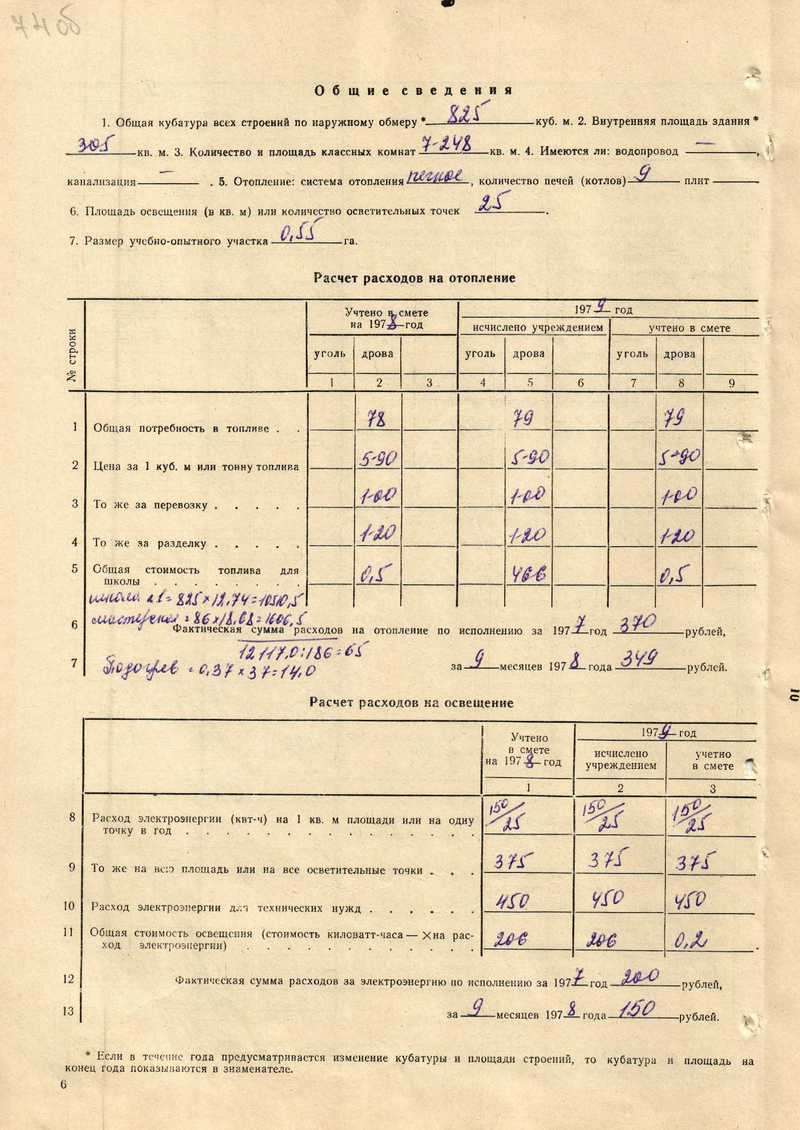 746
Общие сведения
1. Общая кубатура всех строений по наружному обмеру * 825 куб. м. 2. Внутренняя площадь здания *
305 кв. м. 3. Количество и площадь классных комнат 7-248 кв. м. 4. Имеются ли: водопровод —,
канализация — . 5. Отопление: система отопления печное, количество печей (котлов) 9 плит
6. Площадь освещения (в кв. м) или количество осветительных точек 25.
7. Размер учебно-опытного участка 0,55 га.
Расчет расходов на отопление
№ строки
Учтено в смете на 1978 год
1979 год
исчислено учреждением учтено в смете
уголь дрова уголь дрова уголь дрова
1 2 3 4 5 6 7 8 9
1 Общая потребность в топливе . . 78 79 79
2 Цена за 1 куб. м или тонну топлива 5-90 5-90 5-90
3 То же за перевозку . . . . . 1-00 1-00 1-00
4 То же за разделку . . . . . 1-20 1-20 1-20
5 Общая стоимость топлива для школы . . . . . . . . 0,5 466 0,5
825 × 12,74 = 10510,5
6 Фактическая сумма расходов на отопление по исполнению за 1977 год 370 рублей,
12117,0:186=65
7 за 9 месяцев 1978 года 349 рублей.
0,37 × 37 = 14,0
Расчет расходов на освещение
Учтено в смете на 1978 год
1979 год
исчислено учреждением учетно в смете
1 2 3
8 Расход электроэнергии (квт-ч) на 1 кв. м площади или на одну
точку в год . . . . . . . . . . . . . . . 150/25 150/25 150/25
9 То же на всю площадь или на все осветительные точки . . . 375 375 375
10 Расход электроэнергии для технических нужд . . . . . . 450 450 450
11 Общая стоимость освещения (стоимость киловатт-часа — Хна рас-
ход электроэнергии) . . . . . . . . . . . . 206 206 0,2
12 Фактическая сумма расходов за электроэнергию по исполнению за 1977 год 200 рублей,
13 за 9 месяцев 1978 года 150 рублей.
* Если в течение года предусматривается изменение кубатуры и площади строений, то кубатура и площадь на
конец года показываются в знаменателе.
6